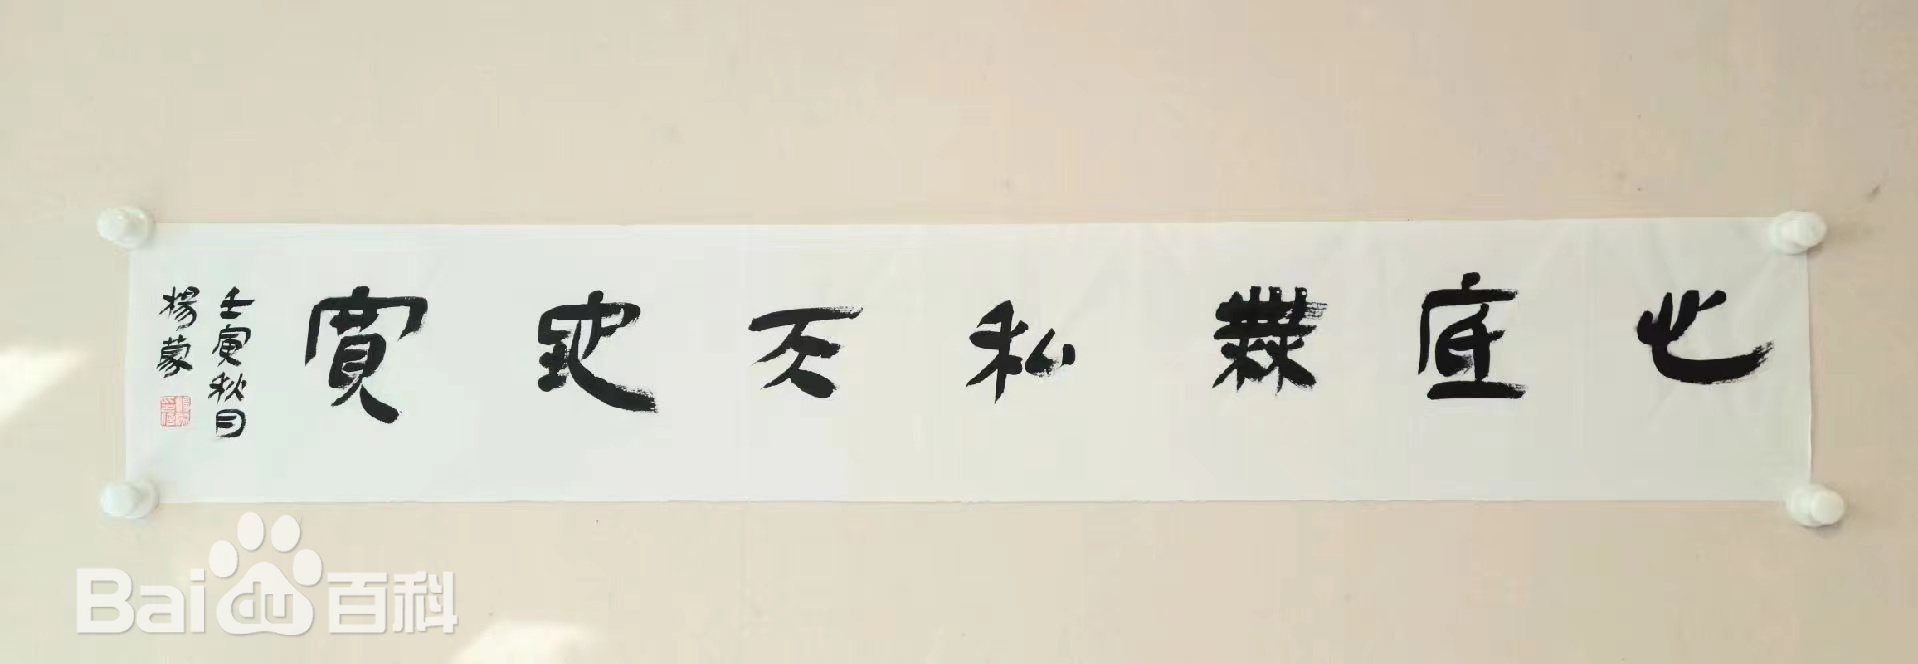 心底無私天地寬
壬寅秋月
楊蒙
Bai du 百科